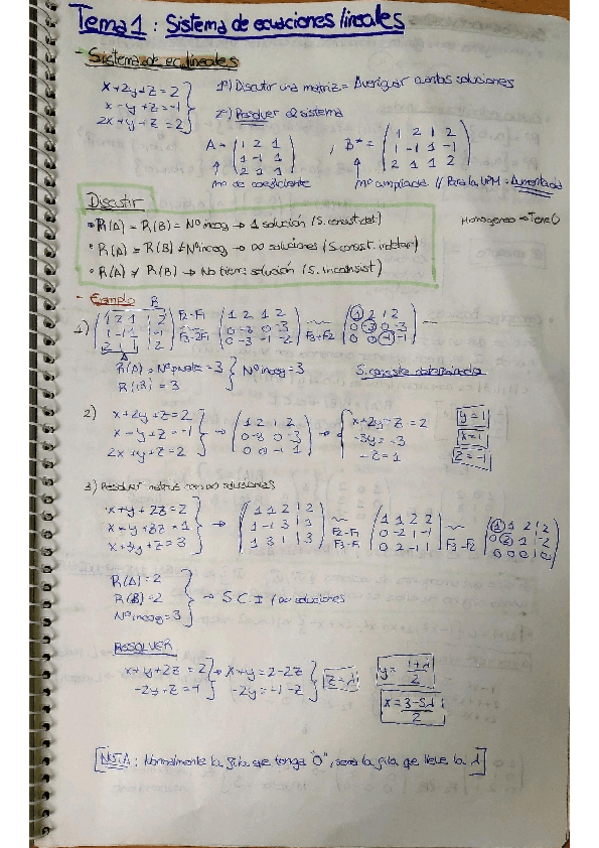 Tema 1: Sistema de ecuaciones lineales
- Sistema de ec. lineales
x+2y+z=2
x-y+z=-1
2x+y+z=2
1º) Discutir una matriz = Averiguar cuantas soluciones
2º) Resolver el sistema
A = (1 2 1 / 1 -1 1 / 2 1 1), B* = (1 2 1 2 / 1 -1 1 -1 / 2 1 1 2)
mº de coeficiente
mº ampliada // Para la UPM = Aumentada
Discutir
• R(A) = R(B) = Nº incog → 1 solución (S. consist. det)
• R(A) = R(B) ≠ Nº incog → ∞ soluciones (S. consist. indeter)
• R(A) ≠ R(B) → No tiene solución (S. inconsist)
Homogeneo → Tema
- Ejemplo B
1) (1 2 1 | 2 / 1 -1 1 | -1 / 2 1 1 | 2) F2-F1 (1 2 1 2 / 0 -3 0 -3 / 0 -3 -1 -2) (1 2 1 2 / 0 -3 0 -3 / 0 0 -1 1)
R(A) = Nº pivote = 3
R(B) = 3
Nº incog = 3
S. consiste determinado
2) x+2y+z=2
x-y+z=-1
2x+y+z=2
→ (1 2 1 2 / 0 -3 0 -3 / 0 0 -1 1) → x+2y-z=2
-3y=-3
-z=1
y=1
x=1
z=-1
3) Resolver matrices con ∞ soluciones
x+y+2z=2
x-y+3z=1
x+3y+z=3
→ (1 1 2 | 2 / 1 -1 3 | 1 / 1 3 1 | 3) F2-F1 F3-F1 (1 1 2 2 / 0 -2 1 -1 / 0 2 -1 1) F3-F2 (1 1 2 | 2 / 0 2 1 | -2 / 0 0 0 | 0)
R(A)=2
R(B)=2
Nº incog=3
→ S.C.I / ∞ soluciones
RESOLVER
x+y+2z=2 → x+y=2-2z
-2y+z=-1 -2y=-1-z
z=λ
y=1+λ/2
x=3-5λ/2
[NOTA: Normalmente la fila que tenga "0", sera la fila que lleve la λ]